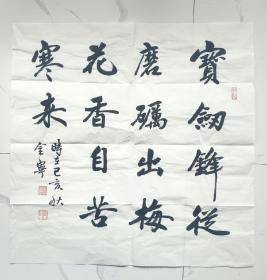 寶劍鋒從
磨礪出梅
花香自苦
寒来
時在己亥秋
金寧